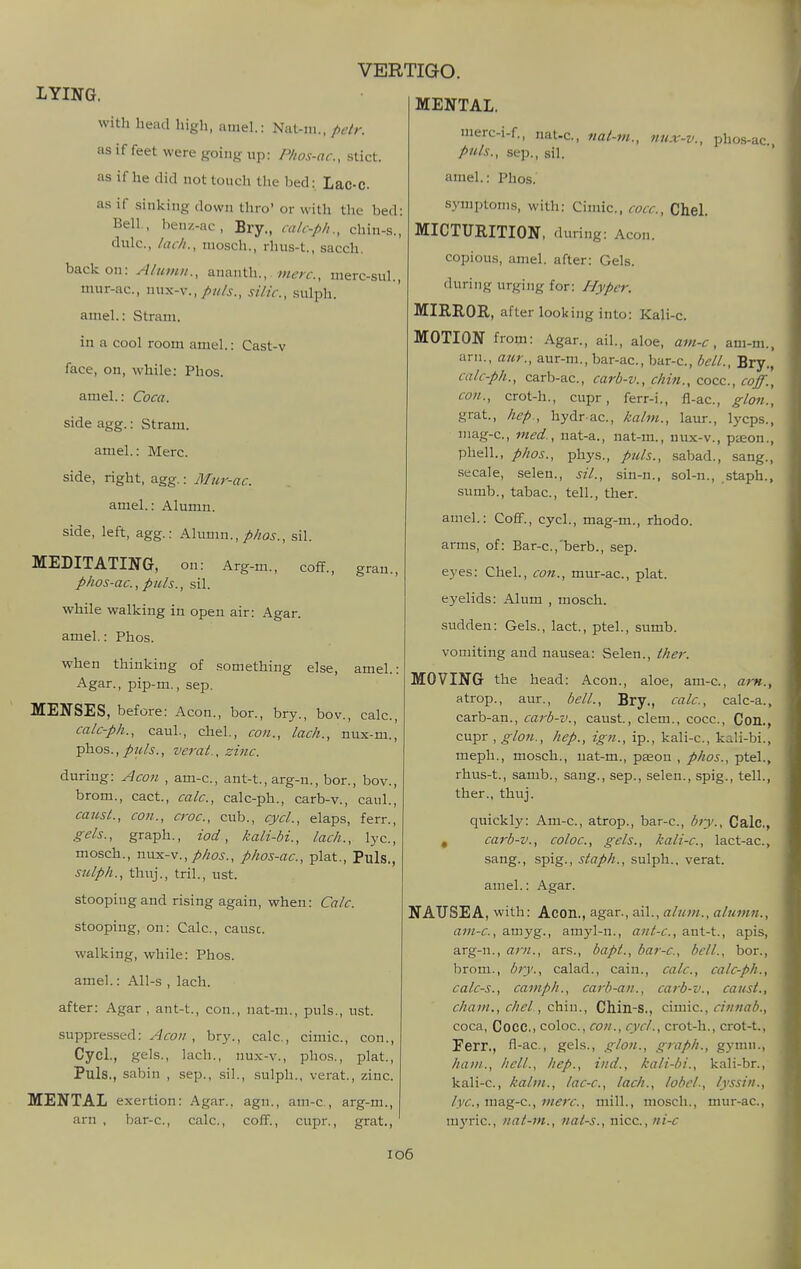 VERTIGO.
LYING.
with head high, amel.: Nat-m., petr.
as if feet were going up: Phos-ac., stict.
as if he did not touch the bed: Lac-c.
as if sinking down thro' or with the bed:
Bell., benz-ac, Bry., calc-ph., chin-s.,
dulc., lach., mosch., rhus-t., sacch.
back on: Alumn., ananth., merc., merc-sul.,
mur-ac., nux-v., puls., silic., sulph.
amel.: Stram.
in a cool room amel.: Cast-v
face, on, while: Phos.
amel.: Coca.
side agg.: Stram.
amel.: Merc.
side, right, agg.: Mur-ac.
amel.: Alumn.
side, left, agg.: Alumn., phos., sil.
MEDITATING, on: Arg-m., coff., gran.,
phos-ac., puls., sil.
while walking in open air: Agar.
amel.: Phos.
when thinking of something else, amel.:
Agar., pip-m., sep.
MENSES, before: Acon., bor., bry., bov., calc.,
calc-ph., caul., chel., con., lach., nux-m.,
phos., puls., verat., zinc.
during: Acon , am-c., ant-t., arg-n., bor., bov.,
brom., cact., calc., calc-ph., carb-v., caul.,
caust., con., croc., cub., cycl., elaps, ferr.,
gels., graph., iod , kali-bi., lach., lyc.,
mosch., nux-v., phos., phos-ac., plat., Puls.,
sulph., thuj., tril., ust.
stooping and rising again, when: Calc.
stooping, on: Calc., caust.
walking, while: Phos.
amel.: All-s , lach.
after: Agar , ant-t., con., nat-m., puls., ust.
suppressed: Acon , bry., calc , cimic., con.,
Cycl., gels., lach., nux-v., phos., plat.,
Puls., sabin , sep., sil., sulph., verat., zinc.
MENTAL exertion: Agar., agn., am-c , arg-m.,
arn , bar-c., calc., coff., cupr., grat.,
MENTAL.
merc-i-f., nat-c., nat-m., nux-v., phos-ac.,
puls., sep., sil.
amel.: Phos.
symptoms, with: Cimic., cocc., Chel.
MICTURITION, during: Acon.
copious, amel. after: Gels.
during urging for: Hyper.
MIRROR, after looking into: Kali-c.
MOTION from: Agar., ail., aloe, am-c , am-m.,
arn., aur., aur-m., bar-ac., bar-c., bell., Bry.,
calc-ph., carb-ac., carb-v., chin., cocc., coff.,
con., crot-h., cupr , ferr-i., fl-ac., glon.,
grat., hep., hydr-ac., kalm., laur., lycps.,
mag-c., med., nat-a., nat-m., nux-v., pæon.,
phell., phos., phys., puls., sabad., sang.,
secale, selen., sil., sin-n., sol-n., staph.,
sumb., tabac., tell., ther.
amel.: Coff., cycl., mag-m., rhodo.
arms, of: Bar-c., berb., sep.
eyes: Chel., con., mur-ac., plat.
eyelids: Alum , mosch.
sudden: Gels., lact., ptel., sumb.
vomiting and nausea: Selen., ther.
MOVING the head: Acon., aloe, am-c., arn.,
atrop., aur., bell., Bry., calc., calc-a.,
carb-an., carb-v., caust., clem., cocc., Con.,
cupr , glon., hep., ign., ip., kali-c., kali-bi.,
meph., mosch., nat-m., pæon , phos., ptel.,
rhus-t., samb., sang., sep., selen., spig., tell.,
ther., thuj.
quickly: Am-c., atrop., bar-c., bry., Calc.,
carb-v., coloc., gels., kali-c., lact-ac.,
sang., spig., staph., sulph., verat.
amel.: Agar.
NAUSEA, with: Acon., agar., ail., alum., alumn.,
am-c., amyg., amyl-n., ant-c., ant-t., apis,
arg-n., arn., ars., bapt., bar-c., bell., bor.,
brom., bry., calad., cain., calc., calc-ph.,
calc-s., camph., carb-an., carb-v., caust.,
cham., chel , chin., Chin-s., cimic., cinnab.,
coca, Cocc., coloc., con., cycl., crot-h., crot-t.,
Ferr., fl-ac., gels., glon., graph., gymn.,
ham., hell., hep., ind., kali-bi., kali-br.,
kali-c., kalm., lac-c., lach., lobel., lyssin.,
lyc., mag-c., merc., mill., mosch., mur-ac.,
myric., nat-m., nat-s., nicc., ni-c
106